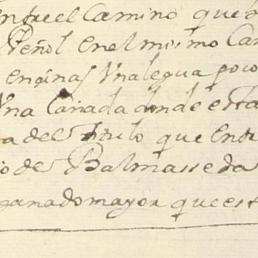 entre el Camino que b
Peñol en el mismo Ca
enzinas Una legua poco
Una Cañada donde esta
a del titulo que Entr
o de Balmasseda
ganado mayor que est